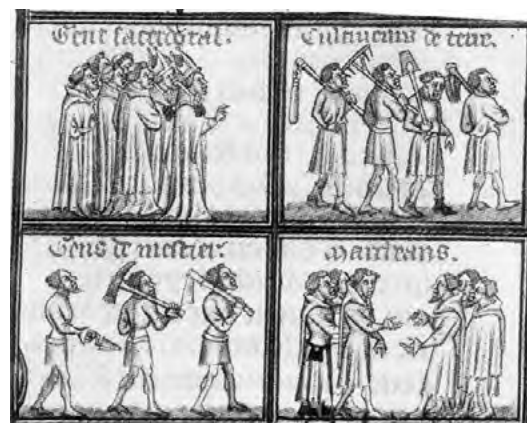 Gent sacerdotal.
Cultiueurs de terre.
Gens de mestier.
Marchans.